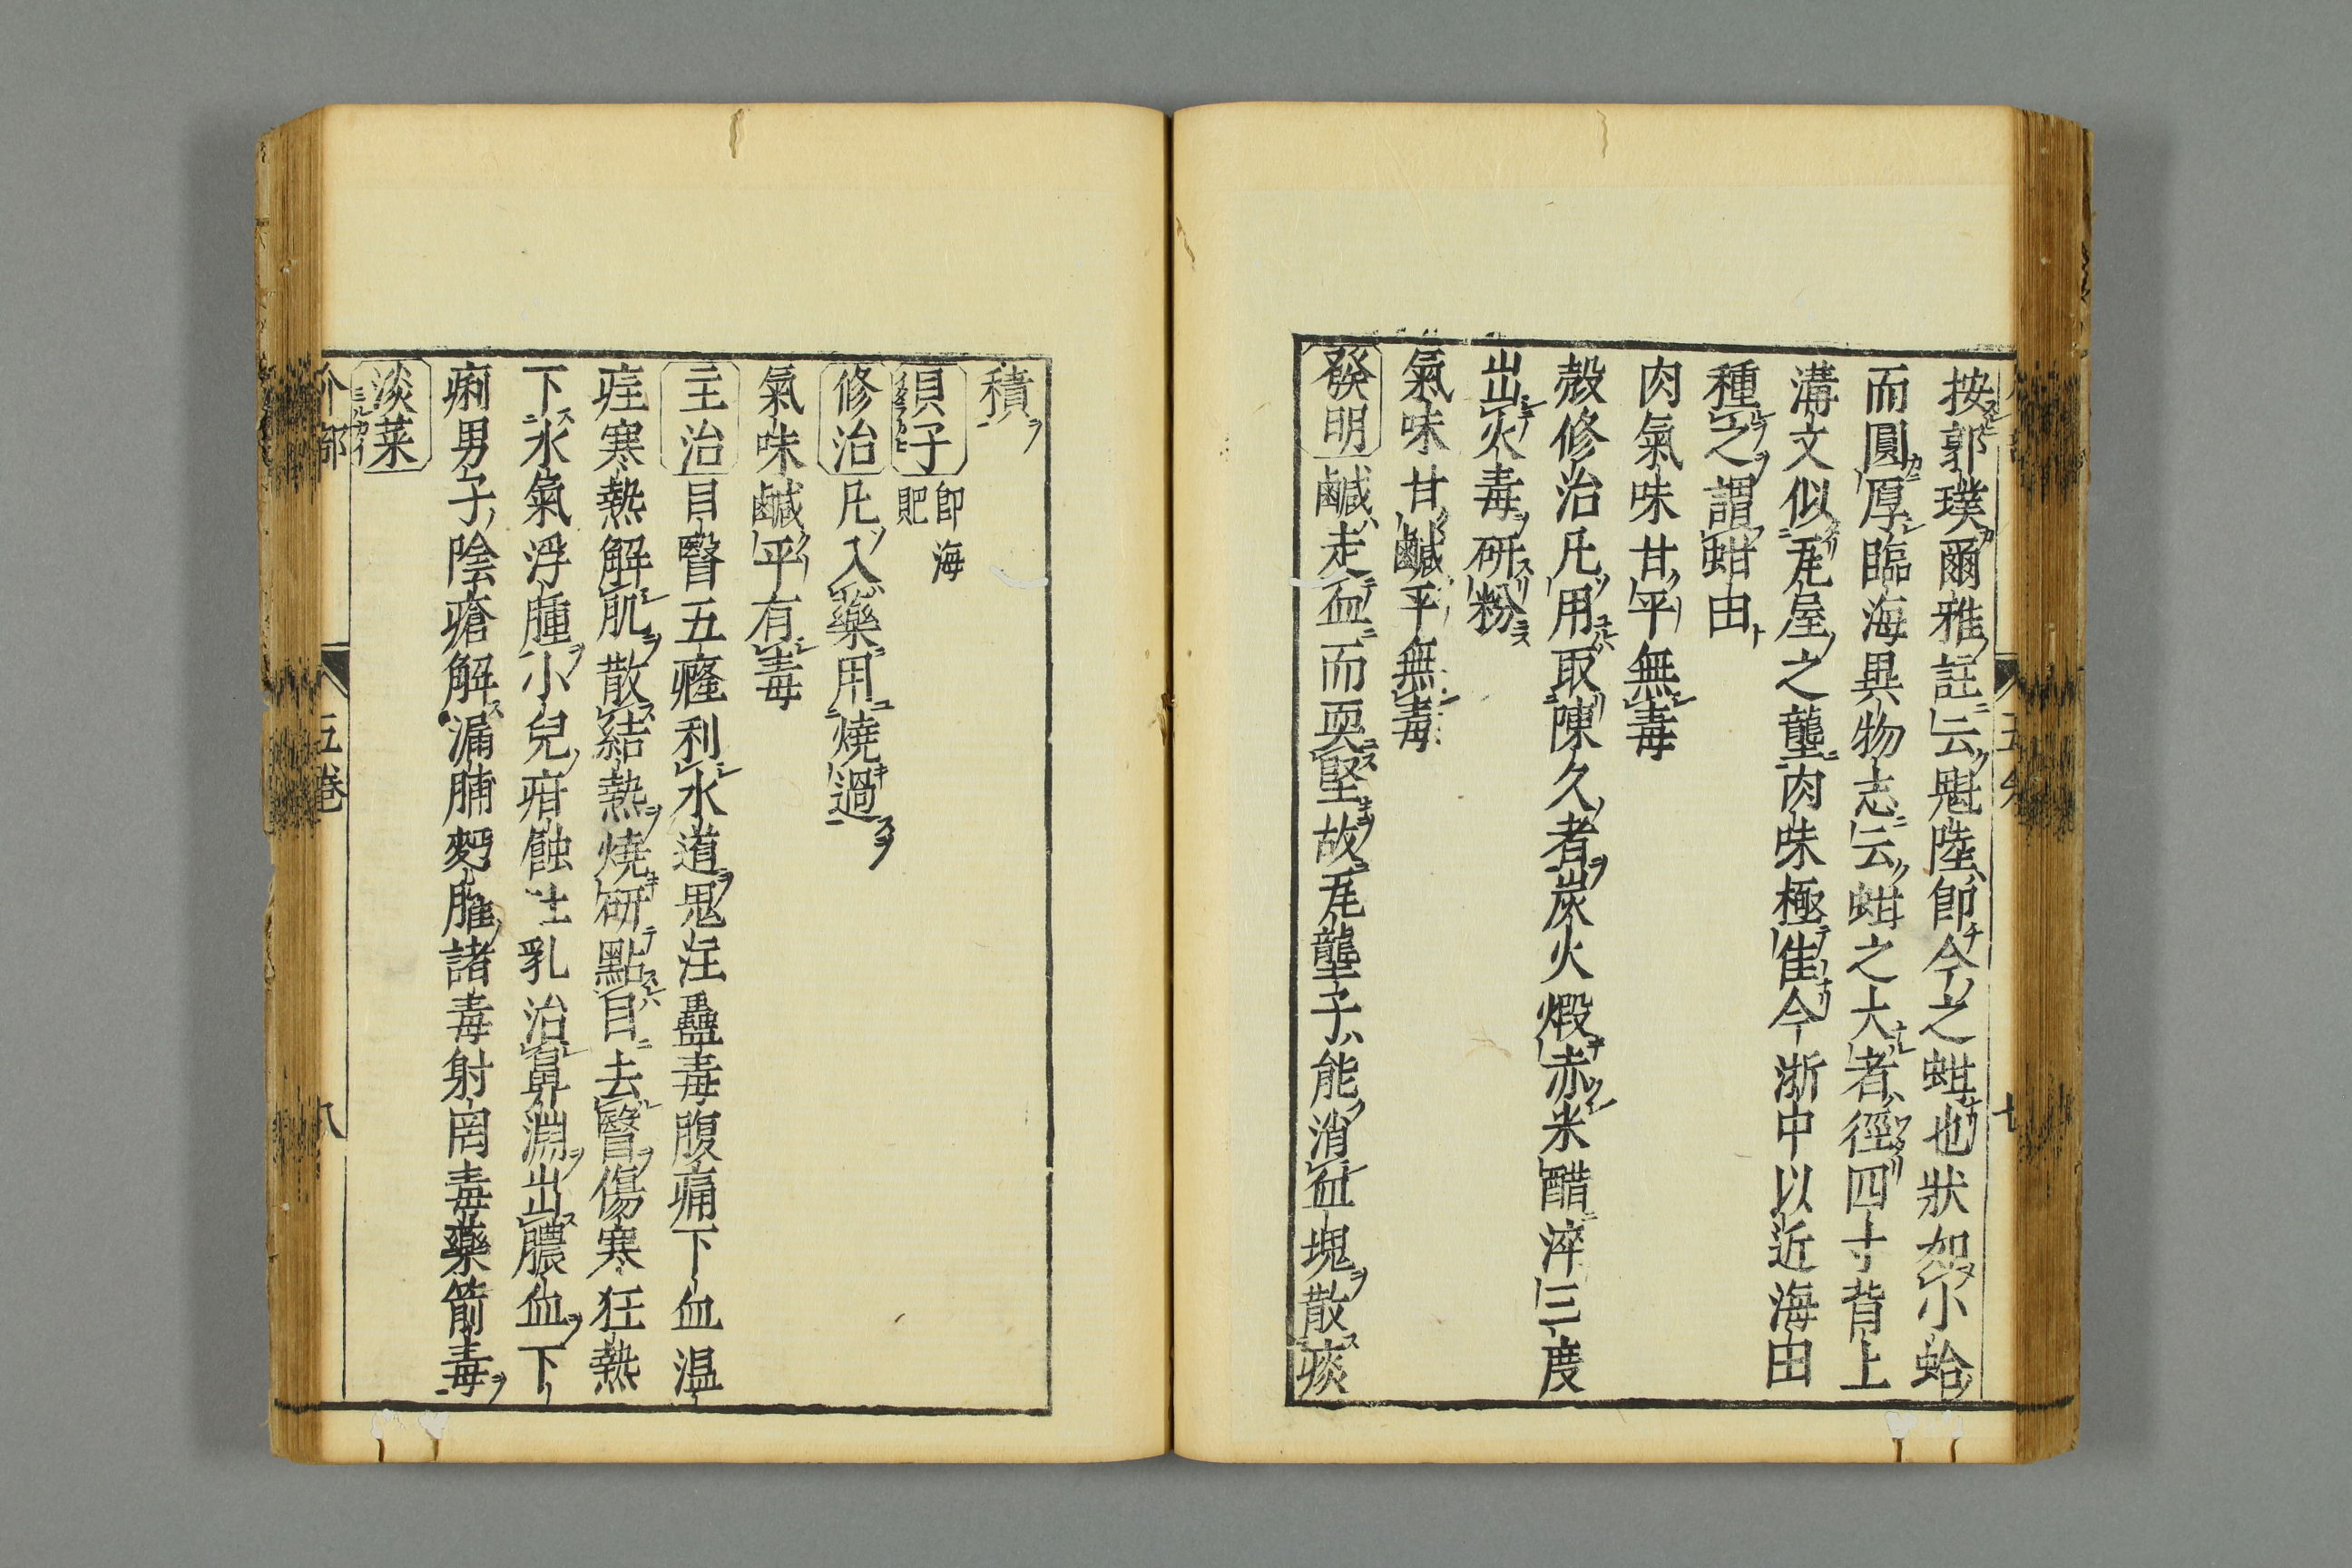 按郭璞爾雅註云魁陸即今之蚶也狀如小蛤
而圓厚臨海異物志云蚶之大者徑四寸背上
溝文似瓦屋之壟肉味極佳今浙中以近海田
種之謂蚶田
肉氣味甘平無毒
殻修治凡用取陳久者炭火煆赤米醋淬三度
出火毒研粉
氣味甘鹹平無毒
發明鹹走血而耎堅故瓦壟子能消血塊散痰
積
貝子即海
䝯
修治凡入藥用燒過
氣味鹹平有毒
主治目瞖五癃利水道鬼注蠱毒腹痛下血温
疰寒熱解肌散結熱燒研點目去瞖傷寒狂熱
下水氣浮腫小兒疳蝕吐乳治鼻淵出膿血下
痢男子陰瘡解漏脯麪臛諸毒射罔毒藥箭毒
淡菜
介部 五卷 八